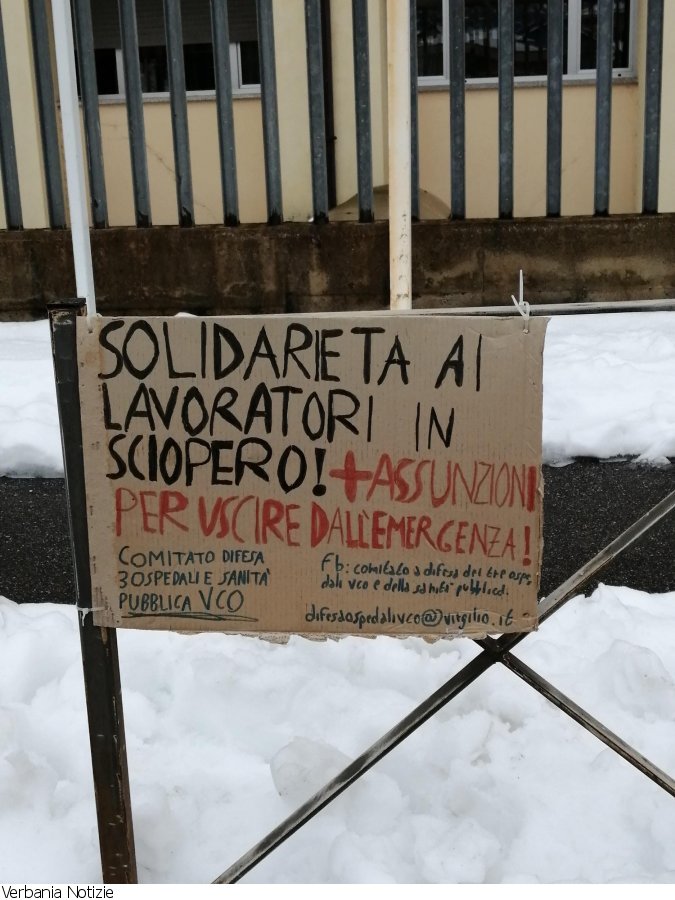 SOLIDARIETA AI
LAVORATORI IN
SCIOPERO! + ASSUNZIONI
PER USCIRE DALL'EMERGENZA!
COMITATO DIFESA
3 OSPEDALI E SANITA'
PUBBLICA VCO
Fb: comitato a difesa dei tre osp
dali vco e della sanità pubblica.
difesaospedalivco@virgilio.it
Verbania Notizie